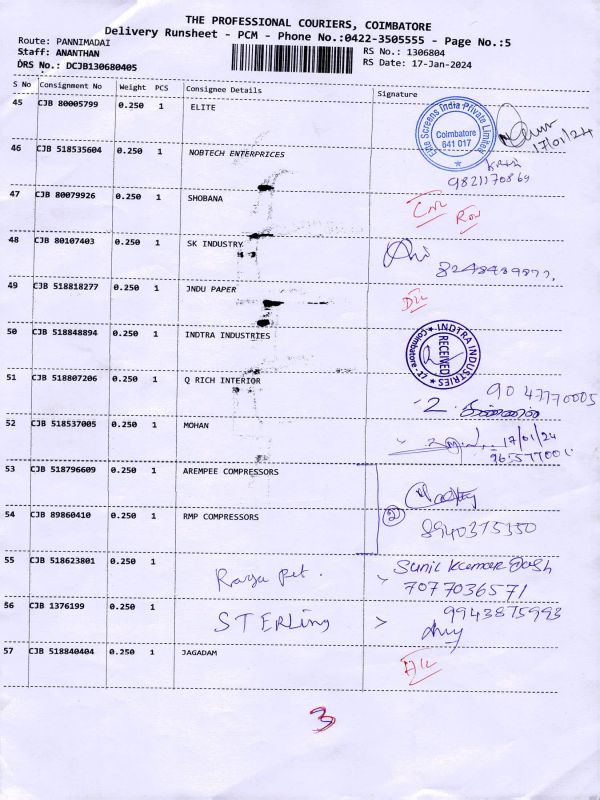 THE PROFESSIONAL COURIERS, COIMBATORE
Delivery Runsheet - PCM - Phone No.:0422-3505555 - Page No.:5
Route: PANNIMADAI
RS No.: 1306804
Staff: ANANTHAN
RS Date: 17-Jan-2024
DRS No.: DCJB130680405
S No Consignment No Weight PCS Consignee Details Signature
45 CJB 80005799 0.250 1 ELITE
Fine Screens India Private Limited
Coimbatore
641 017
17/01/24
46 CJB 518535604 0.250 1 NOBTECH ENTERPRICES
9821170869
47 CJB 80079926 0.250 1 SHOBANA
48 CJB 80107403 0.250 1 SK INDUSTRY
49 CJB 518818277 0.250 1 JNDU PAPER
50 CJB 518848894 0.250 1 INDTRA INDUSTRIES
INDTRA INDUSTRIES
RECEIVED
Coimbatore - 17
51 CJB 518807206 0.250 1 Q RICH INTERIOR
90 47770005
2
52 CJB 518537005 0.250 1 MOHAN
17/01/24
53 CJB 518796609 0.250 1 AREMPEE COMPRESSORS
2
54 CJB 89860410 0.250 1 RMP COMPRESSORS
8940375350
55 CJB 518623801 0.250 1 Raga pet.
Sunil Kumar Dash
7077036571
56 CJB 1376199 0.250 1 STERLing >
9943875993
57 CJB 518840404 0.250 1 JAGADAM
3